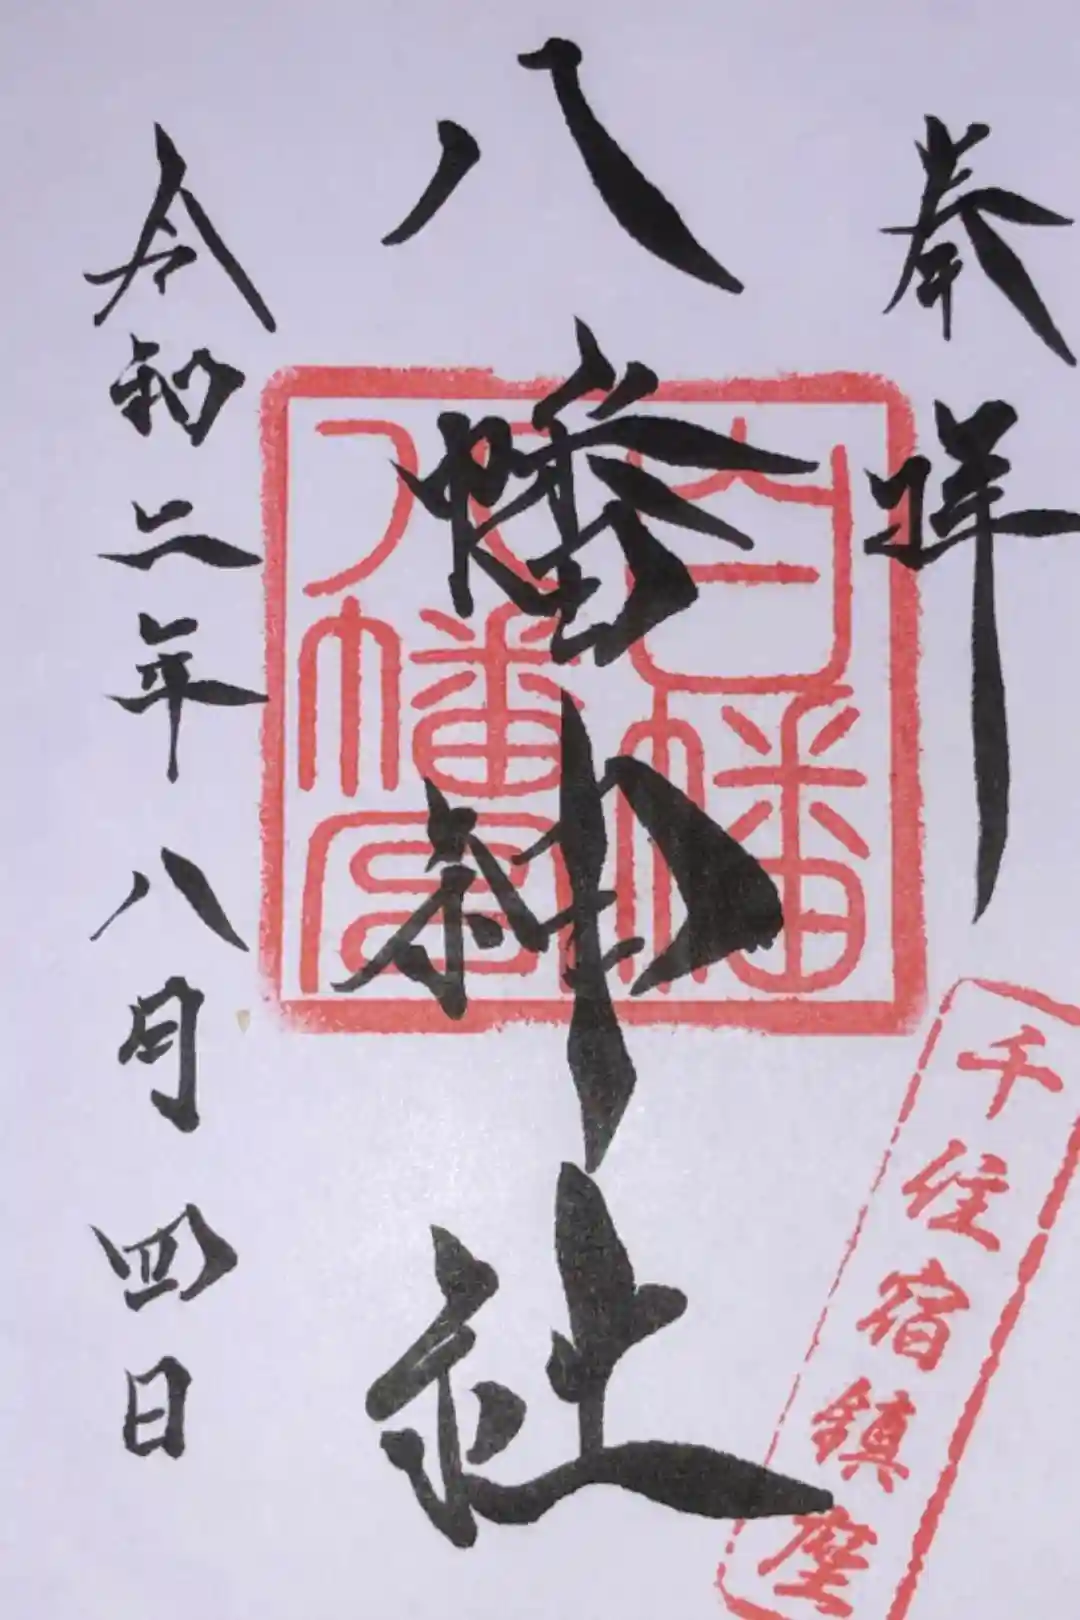 奉拝
千住宿鎮座
八幡神社
白幡
八幡宮
令和二年八月四日